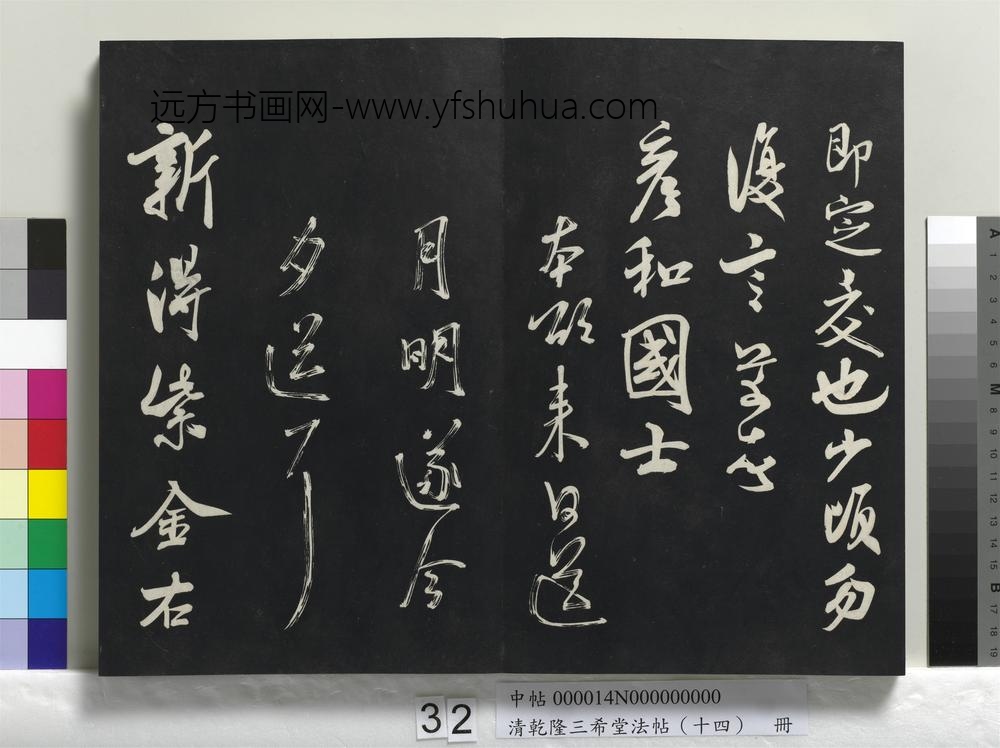 远方书画网-www.yfshuhua.com
即定交也少頃勿
復言芾頓首
彦和國士
本欲來日送
月明遂今
夕送了
新得紫金右
32
中帖 000014N000000000
清乾隆三希堂法帖（十四） 冊
A 1 2 3 4 5 6 M 8 9 10 11 12 13 14 15 B 17 18 19